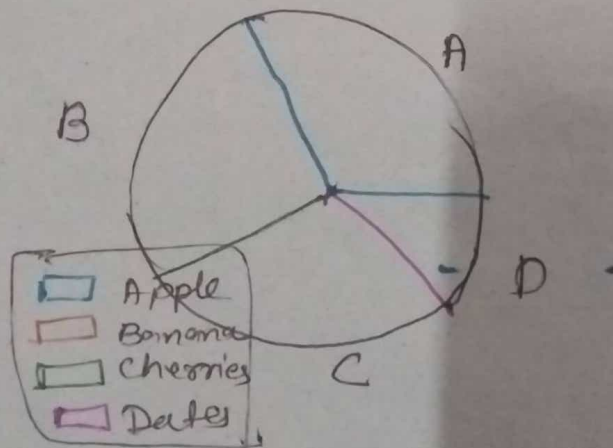 A
B
D
C
Apple
Banana
Cherries
Dates